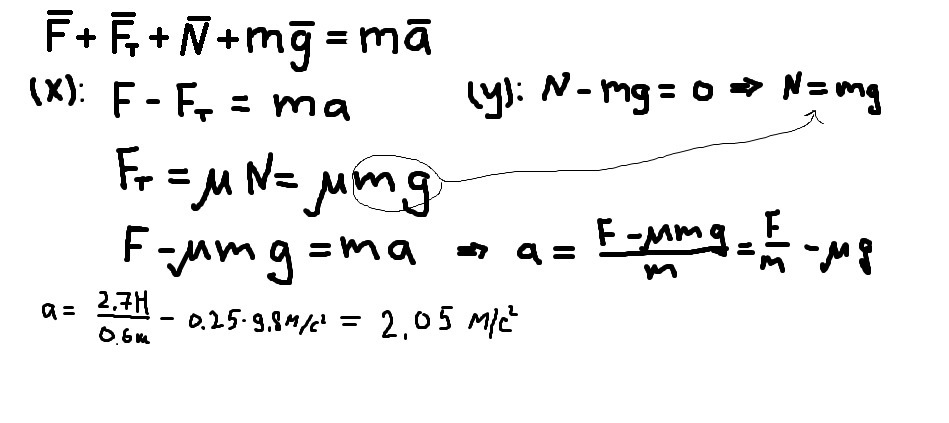 F̅ + F̅_T + N̅ + mg̅ = ma̅
(x): F - F_T = ma (y): N - mg = 0 ⇒ N = mg
F_T = μN = μmg
F - μmg = ma ⇒ a = (F - μmg)/m = F/m - μg
a = 2.7H/0.6m - 0.25·9.8м/c² = 2.05 м/c²